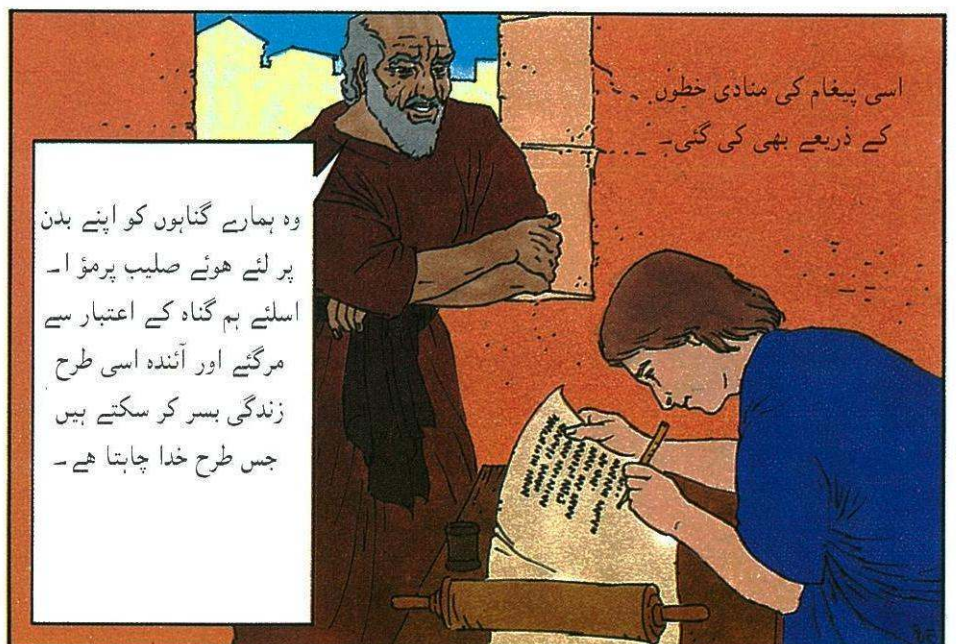 اسی پیغام کی منادی خطوں
کے ذریعے بھی کی گئی۔
وہ ہمارے گناہوں کو اپنے بدن
پر لئے ھوئے صلیب پرمؤ ا۔
اسلئے ہم گناہ کے اعتبار سے
مرگئے اور آئندہ اسی طرح
زندگی بسر کر سکتے ہیں
جس طرح خدا چاہتا ھے۔